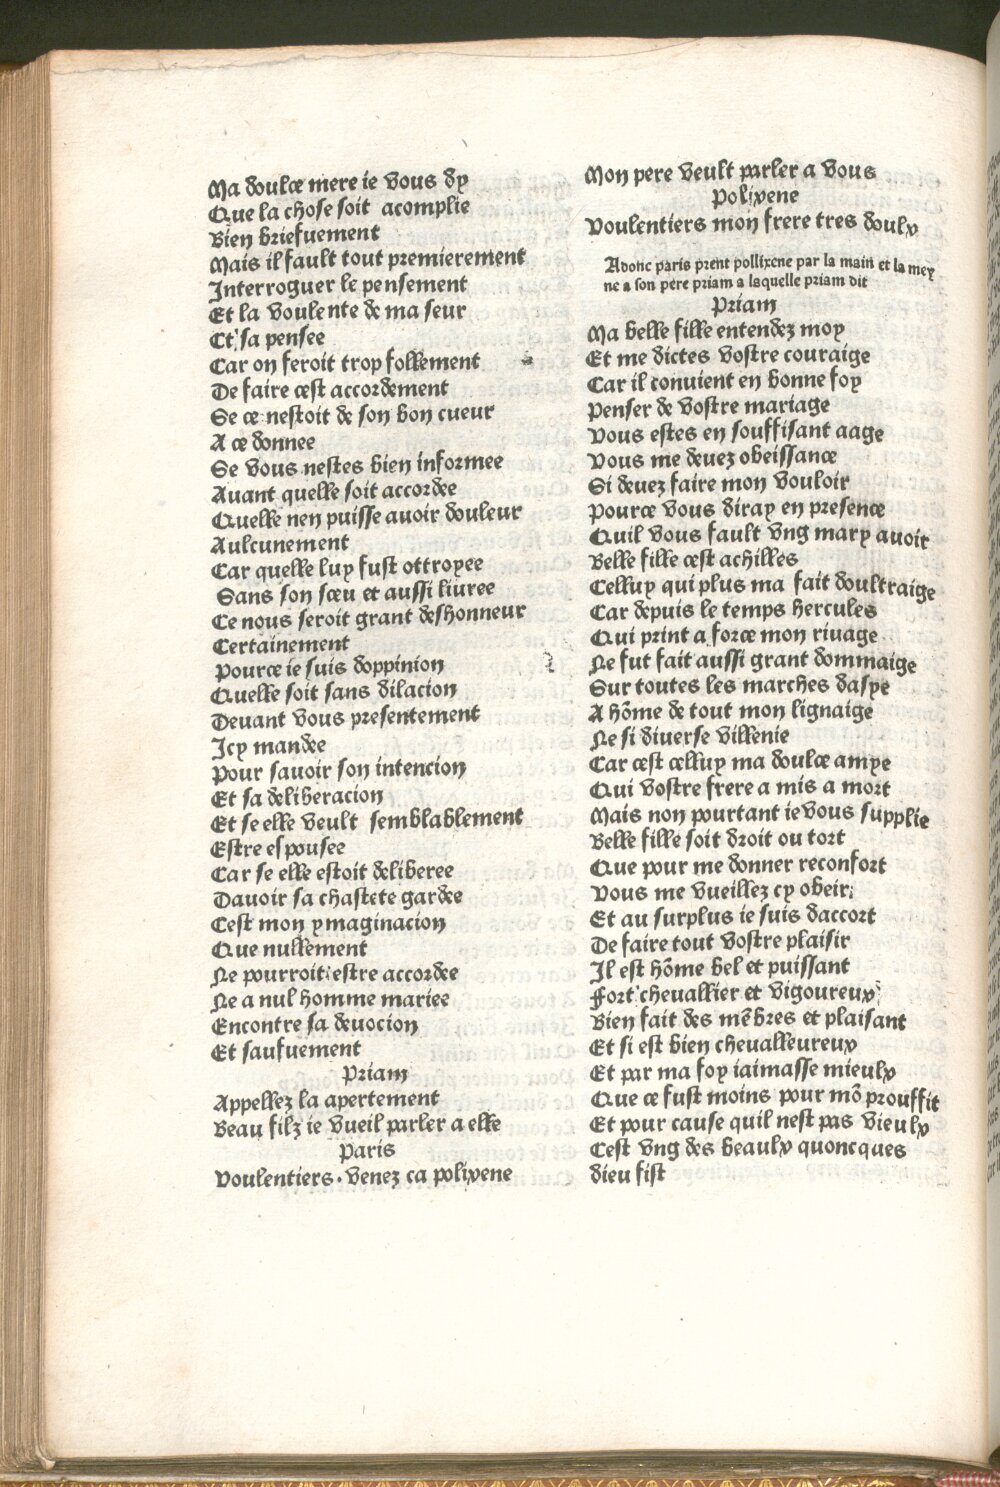 Ma doulce mere ie vous dy
Que la chose soit acomplie
Bien briefuement
Mais il fault tout premierement
Interroguer le pensement
Et la voulente de ma seur
Et sa pensee
Car on feroit trop follement
De faire cest accordement
Se ce nestoit de son bon cueur
A ce donnee
Se vous nestes bien informee
Auant quelle soit accordee
Quelle nen puisse auoir douleur
Aulcunement
Car quelle luy fust ottroyee
Sans son sceu et aussi liuree
Ce nous seroit grant deshonneur
Certainement
Pource ie suis doppinion
Quelle soit sans dilacion
Deuant vous presentement
Icy mandee
Pour sauoir son intencion
Et sa deliberacion
Et se elle veult semblablement
Estre espousee
Car se elle estoit deliberee
Dauoir sa chastete gardee
Cest mon ymaginacion
Que nullement
Ne pourroit estre accordee
Ne a nul homme mariee
Encontre sa deuocion
Et saufuement
Priam
Appellez la apertement
Beau filz ie vueil parler a elle
Paris
Voulentiers. venez ca polixene
Mon pere veult parler a vous
Polixene
Voulentiers mon frere tres doulx
Adonc paris prent pollixene par la main et la mey
ne a son pere priam a laquelle priam dit
Priam
Ma belle fille entendez moy
Et me dictes vostre couraige
Car il conuient en bonne foy
Penser de vostre mariage
Vous estes en souffisant aage
Vous me deuez obeissance
Si deuez faire mon vouloir
Pource vous diray en presence
Quil vous fault vng mary auoir
Belle fille cest achilles
Celluy qui plus ma fait doultraige
Car depuis le temps hercules
Qui print a force mon riuage
Ne fut fait aussi grant dommaige
Sur toutes les marches dasye
A hōme de tout mon lignaige
Ne si diuerse villenie
Car cest celluy ma doulce amye
Qui vostre frere a mis a mort
Mais non pourtant ie vous supplie
Belle fille soit droit ou tort
Que pour me donner reconfort
Vous me vueillez cy obeir
Et au surplus ie suis daccort
De faire tout vostre plaisir
Il est hōme bel et puissant
Fort cheuallier et vigoureux
Bien fait des mēbres et plaisant
Et si est bien cheualleureux
Et par ma foy iaimasse mieulx
Que ce fust moins pour mō prouffit
Et pour cause quil nest pas vieulx
Cest vng des beaulx quoncques
dieu fist